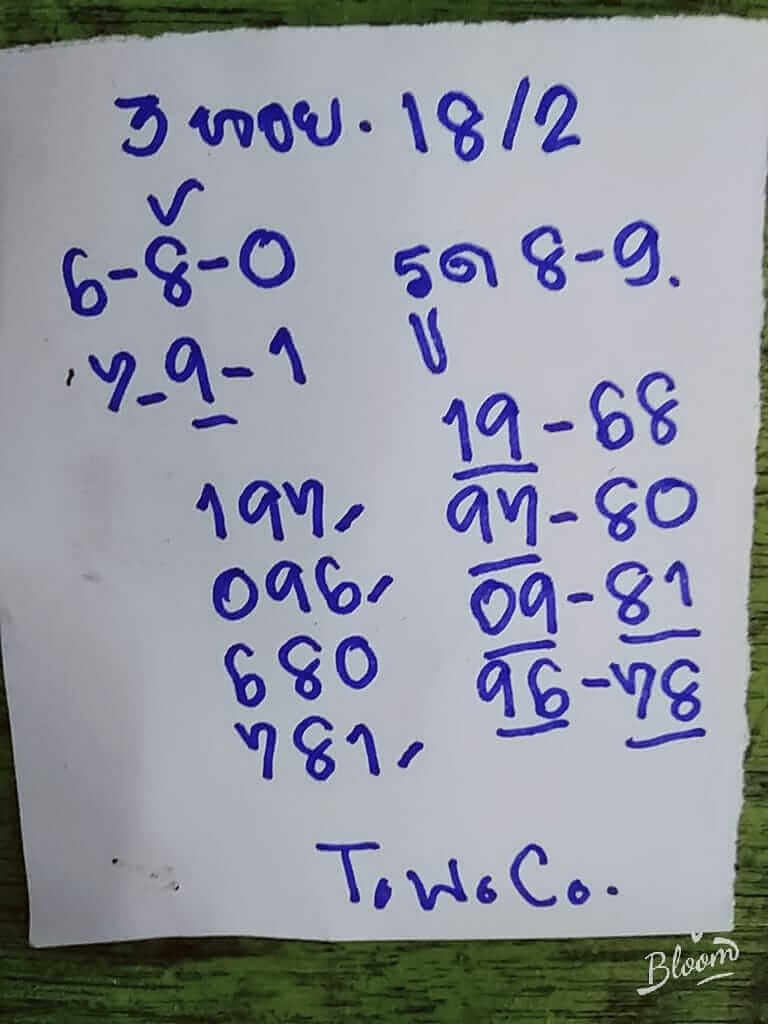 3 หอย. 18/2
6-8-0
7-9-1
197,
096,
680
781,
รูด 8-9.
19-68
97-80
09-81
96-78
T.W.Co.
Bloom